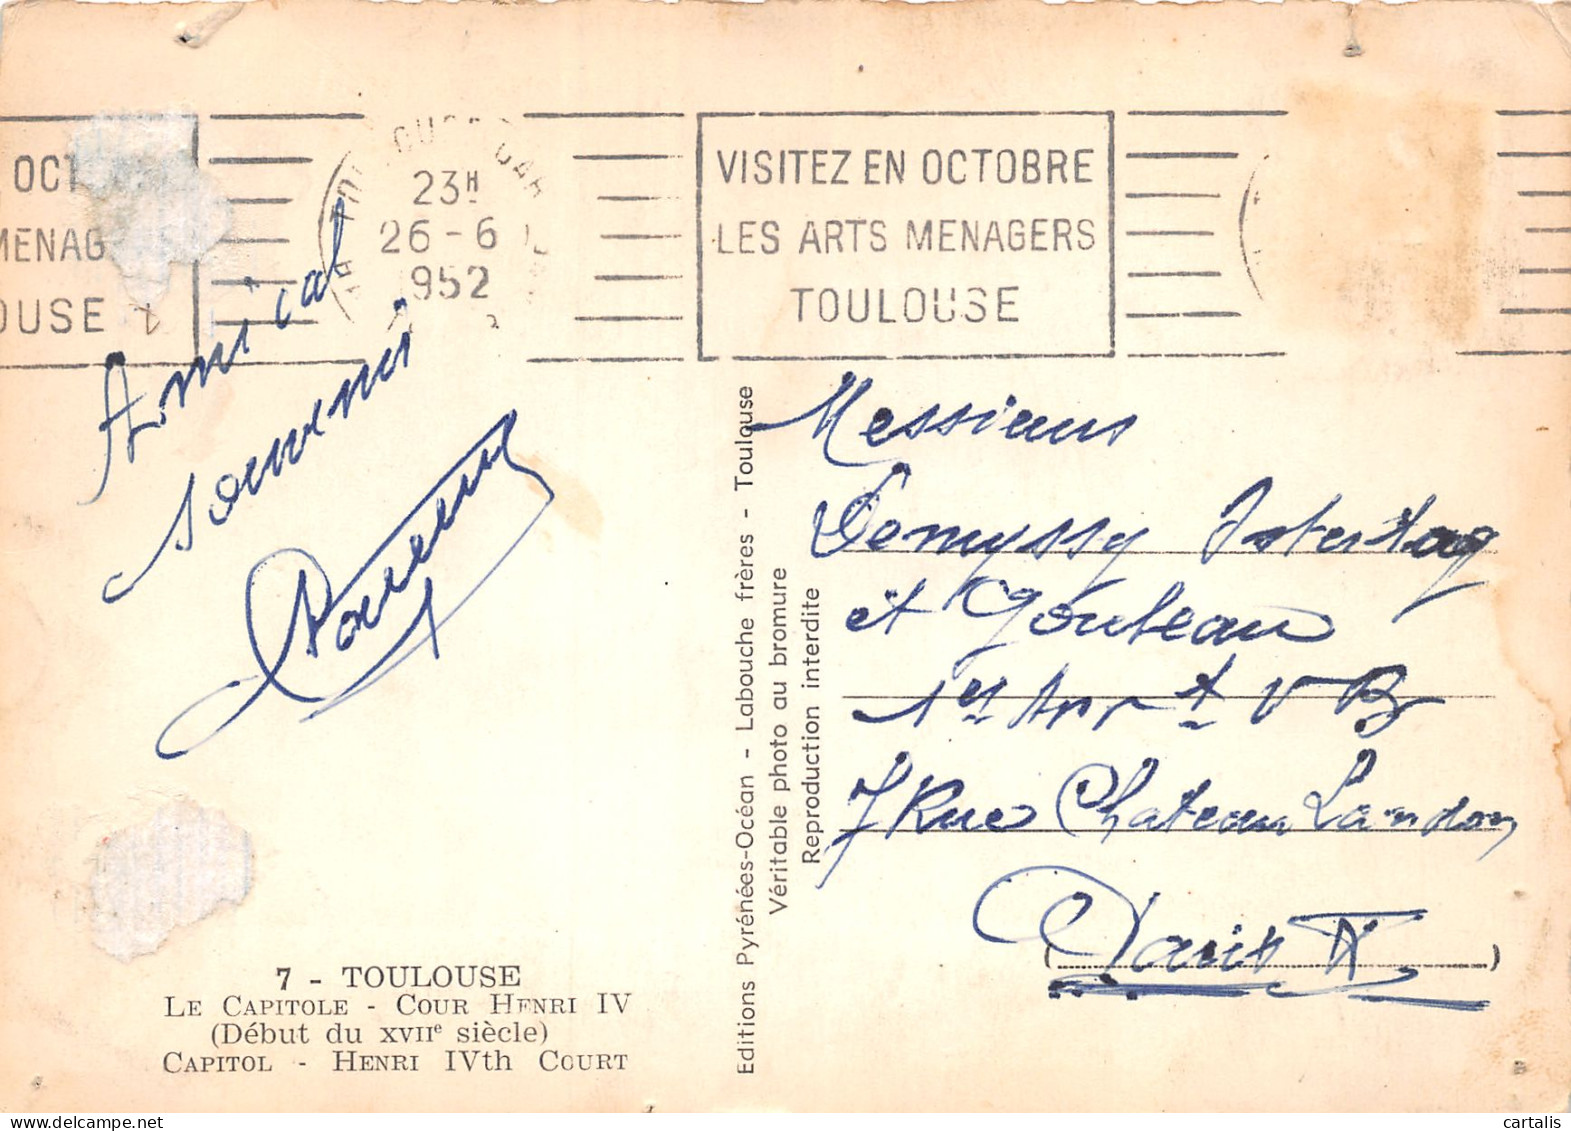 OCT
MENAG
OUSE
23H
26-6
1952
VISITEZ EN OCTOBRE
LES ARTS MENAGERS
TOULOUSE
Amical
souvenir
Messieurs
et Gouteau
1er Arr t V B
7 Rue Chateau Landon
Paris X
Editions Pyrénées-Océan - Labouche frères - Toulouse
Véritable photo au bromure
Reproduction interdite
7 - TOULOUSE
LE CAPITOLE - COUR HENRI IV
(Début du XVIIe siècle)
CAPITOL - HENRI IVth COURT
cartalis